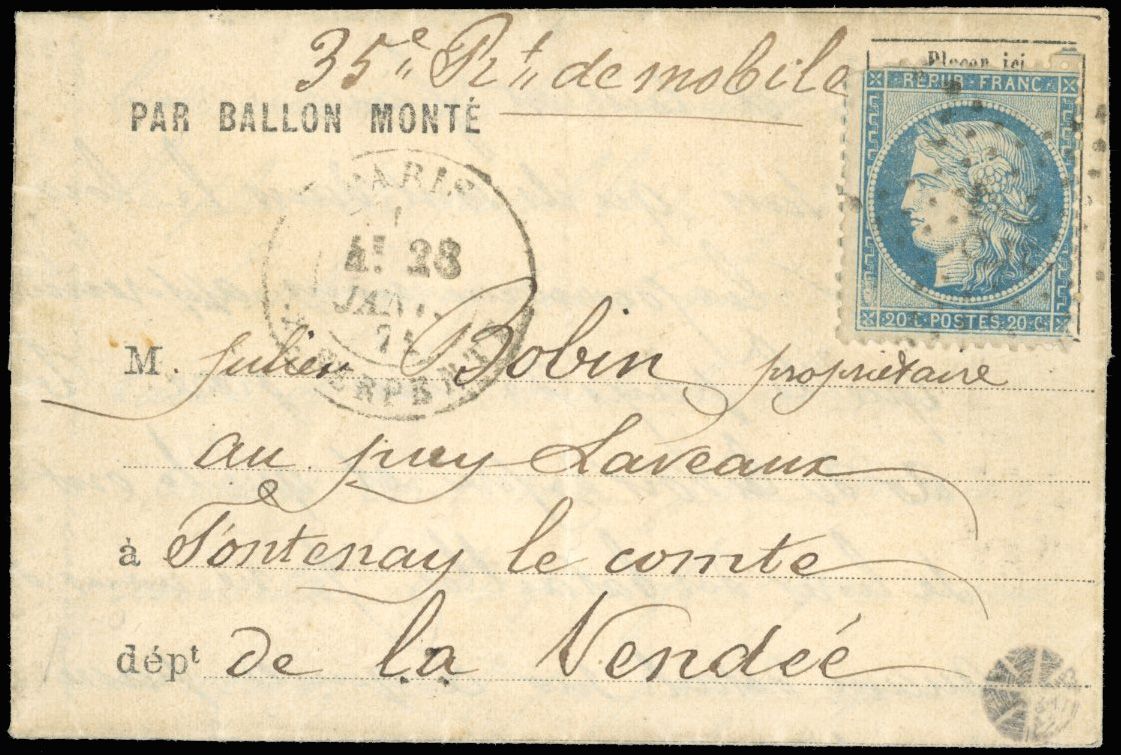 35e Rt de mobile
PAR BALLON MONTÉ
Placer ici
REPUB. FRANC.
20 C. POSTES 20 C.
PARIS
28
JANV.
71
SERPENTE
M. Julien Bobin propriétaire
au puy Laveaux
à Fontenay le comte
dépt de la Vendée